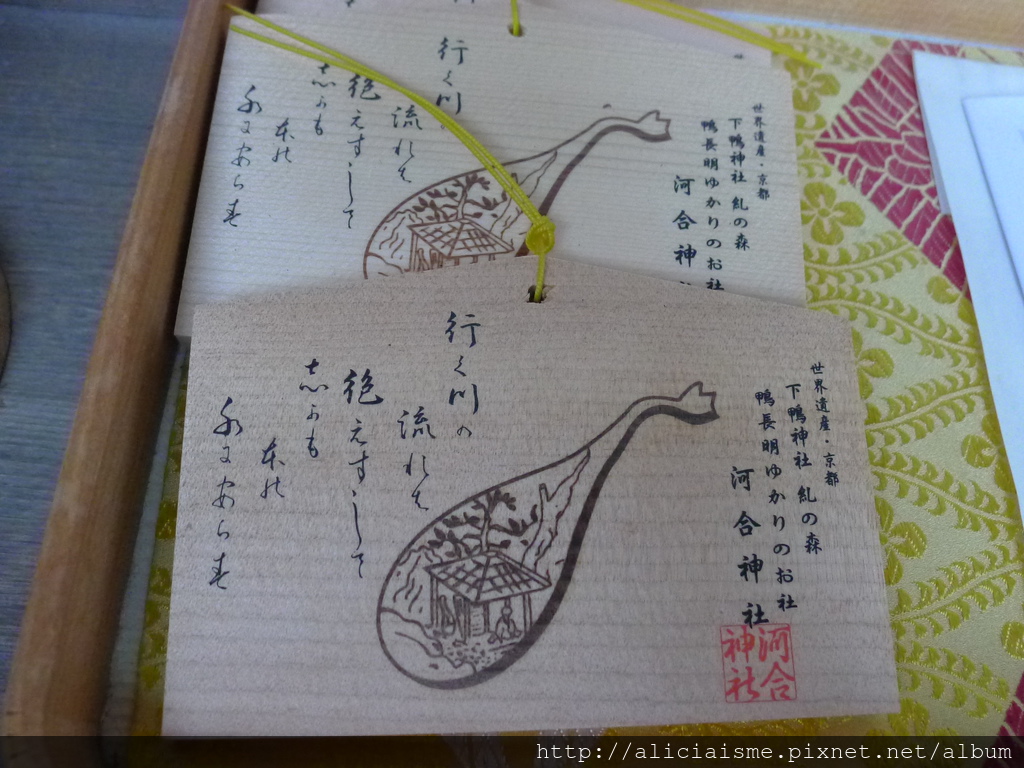 世界遺産・京都
下鴨神社 糺の森
鴨長明ゆかりのお社
河合神
行く川
流れは
絶えすして
志かも
本の
水にあらす
世界遺産・京都
下鴨神社 糺の森
鴨長明ゆかりのお社
河合神社
河合神社
行く川の
流れは
絶えすして
志かも
本の
水にあらす
http://aliciaisme.pixnet.net/album